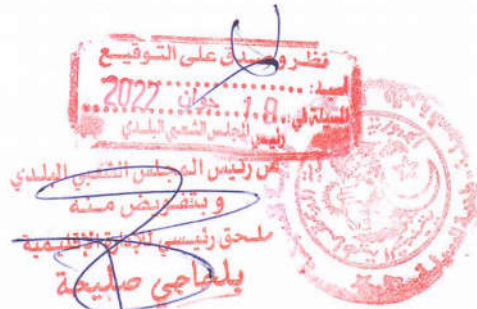 نظر وصدق على التوقيع
السيد : ..............
المسيلة في : 18 جوان 2022
رئيس المجلس الشعبي البلدي
عن رئيس المجلس الشعبي البلدي
وبتفويض منه
ملحق رئيسي للإدارة الإقليمية
بلعاجي صليحة